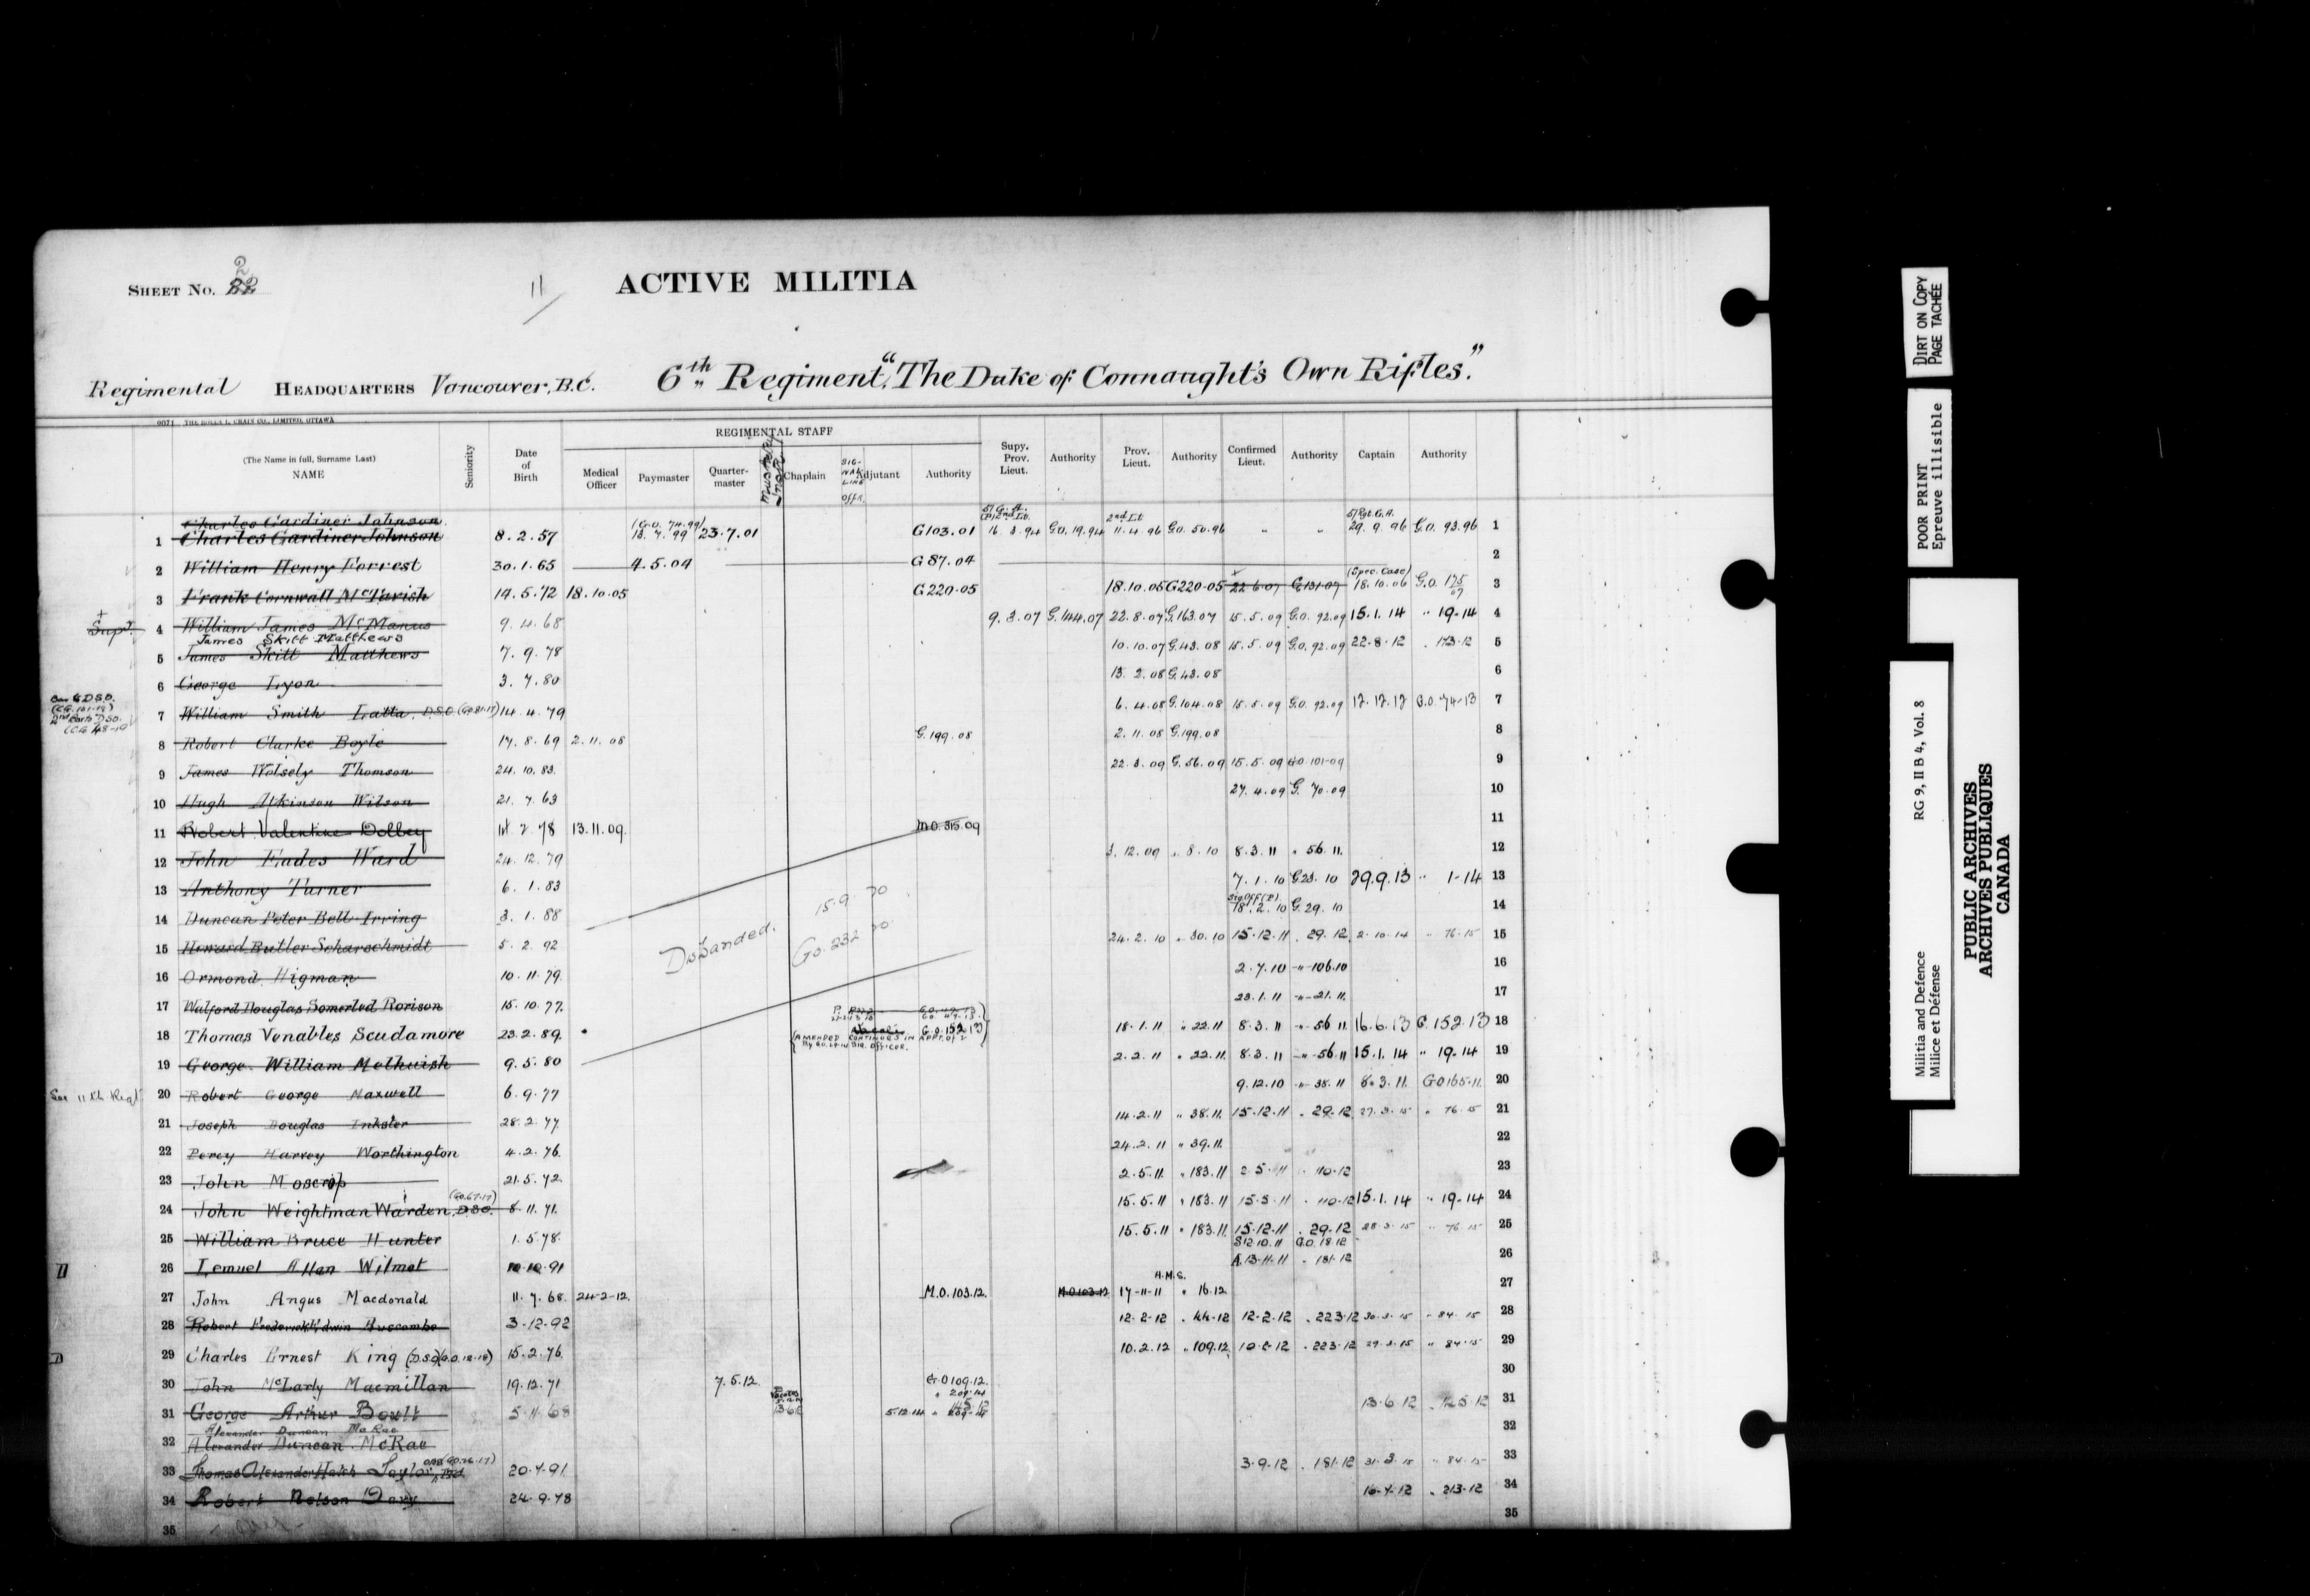 SHEET NO. 22 2
11
ACTIVE MILITIA
Regimental HEADQUARTERS Vancouver, B.C. 6th Regiment, "The Duke of Connaught's Own Rifles."
0071 THE ROLLA L. CRAIN CO., LIMITED, OTTAWA
REGIMENTAL STAFF
(The Name in full, Surname Last) NAME Seniority Date of Birth Medical Officer Paymaster Quarter-master Chaplain SIG-NAL LING Offr. Adjutant Authority Supy. Prov. Lieut. Authority Prov. Lieut. Authority Confirmed Lieut. Authority Captain Authority
Charles Gardiner Johnson
1 Charles Gardiner Johnson 8.2.57 (G.O. 74.99) 18.7.99 23.7.01 G103.01 16.3.94 G.O.19.94 2nd Lt 11.4.96 G.O.50.96 " " 5/Rgt.G.A. 29.9.96 G.O.93.96 1
2 William Henry Forrest 30.1.65 4.5.04 G87.04 2
3 Frank Cornwall McTavish 19.5.72 18.10.05 G220.05 18.10.05 G220.05 22.6.07 G.131.07 (Spec. Case) 18.10.06 G.O. 175/07 3
Supy. 4 William James McManus 9.4.68 9.3.07 G.144.07 22.8.07 G.163.07 15.5.09 G.O.92.09 15.1.14 " 19-14 4
James Skitt Matthews
5 James Skitt Matthews 7.9.78 10.10.07 G.43.08 15.5.09 G.O.92.09 22-8-12 . 173-12 5
6 George Lyon 3.7.80 13.2.08 G.43.08 6
7 William Smith Latta, D.S.O. 14.4.79 6.4.08 G.104.08 15.5.09 G.O.92.09 12.12.12 G.O.74-13 7
8 Robert Clarke Boyle 17.8.69 2.11.08 G.199.08 2.11.08 G.199.08 8
9 James Wolsely Thomson 24.10.83 22.3.09 G.56.09 15.5.09 G.O.101-09 9
10 Hugh Atkinson Wilson 21.7.63 27.4.09 G.70.09 10
11 Robert Valentine Dolbey 2.78 13.11.09. M.O.315.09 11
12 John Eades Ward 24.12.79 3.12.09 " 8.10 8.3.11 " 56.11. 12
13 Anthony Turner 6.1.83 7.1.10 G.23.10 29.9.13 " 1-14 13
14 Duncan Peter Bell-Irving 3.1.88 18.2.10 G.29.10 14
Disbanded. 15.9.20 G.O.232 20
15 Howard Butler Scharschmidt 5.2.92 24.2.10 " 30.10 15-12-11 . 29.12. 2-10-14 " 76-15 15
16 Ormond Higman 10.11.79. 2.7.10 -"-106.10 16
17 Walford Douglas Somerled Rorison 15.10.77. 23.1.11 -"-21.11. 17
18 Thomas Venables Scudamore 23.2.89. G.O.152.13 18.1.11 " 22.11 8.3.11 -"-56 11. 16.6.13 G.152.13 18
19 George William Melhuish 9.5.80 2.2.11 " 22.11. 8.3.11 -"-56.11 15.1.14 " 19-14 19
See 11th Regt 20 Robert George Maxwell 6.9.77 9.12.10 -"-38.11 8.3.11. G.O165.11. 20
21 Joseph Douglas Inkster 28.2.77. 14.2.11 " 38.11. 15-12-11 . 29-12 27-3-15 " 76-15 21
22 Percy Harvey Worthington 4.2.76. 24.2.11 " 39.11. 22
23 John Moscrop 21.5.72. 2.5.11. " 183.11 2-5-11 . 110-12 23
24 John Weightman Warden, D.S.O. (G.O.67-17) 8.11.71. 15.5.11 " 183.11 15-5-11 . 110-12 15.1.14 " 19-14 24
25 William Bruce Hunter 1.5.78. 15.5.11 " 183.11. 15-12-11 . 29-12 28-3-15 " 76-15 25
26 Lemuel Allan Wilmot 10-10-91 A.13-11-11 . 181-12 26
27 John Angus Macdonald 11.7.68. 24-2-12. M.O.103.12. M.O.103.12 A.M.C. 17-11-11 " 16.12. 27
28 Robert Frederick Edwin Buscombe 3-12-92 12-2-12 . 44-12 12-2-12 . 223-12 30-3-15 " 84-15 28
29 Charles Ernest King (D.S.O.) 15.2.76. 10.2.12 " 109.12 10-2-12 . 223-12 29-3-15 " 84-15 29
30 John McLarty Macmillan 19.12.71 7.5.12. G.O109.12. 30
31 George Arthur Boult 5-11-68 5.12.14 13-6-12 . 125-12 31
Alexander Duncan McRae
32 Alexander Duncan McRae 32
33 Thomas Alexander Hatch Taylor 20-4-91 3-9-12 . 181-12 31-3-15 " 84-15 33
34 Robert Nelson Davy 24-9-78 . 213-12 34
35 35
DIRT ON COPY
PAGE TACHÉE
POOR PRINT
Epreuve illisible
Militia and Defence RG 9, II B 4, Vol. 8
Milice et Défense
PUBLIC ARCHIVES
ARCHIVES PUBLIQUES
CANADA